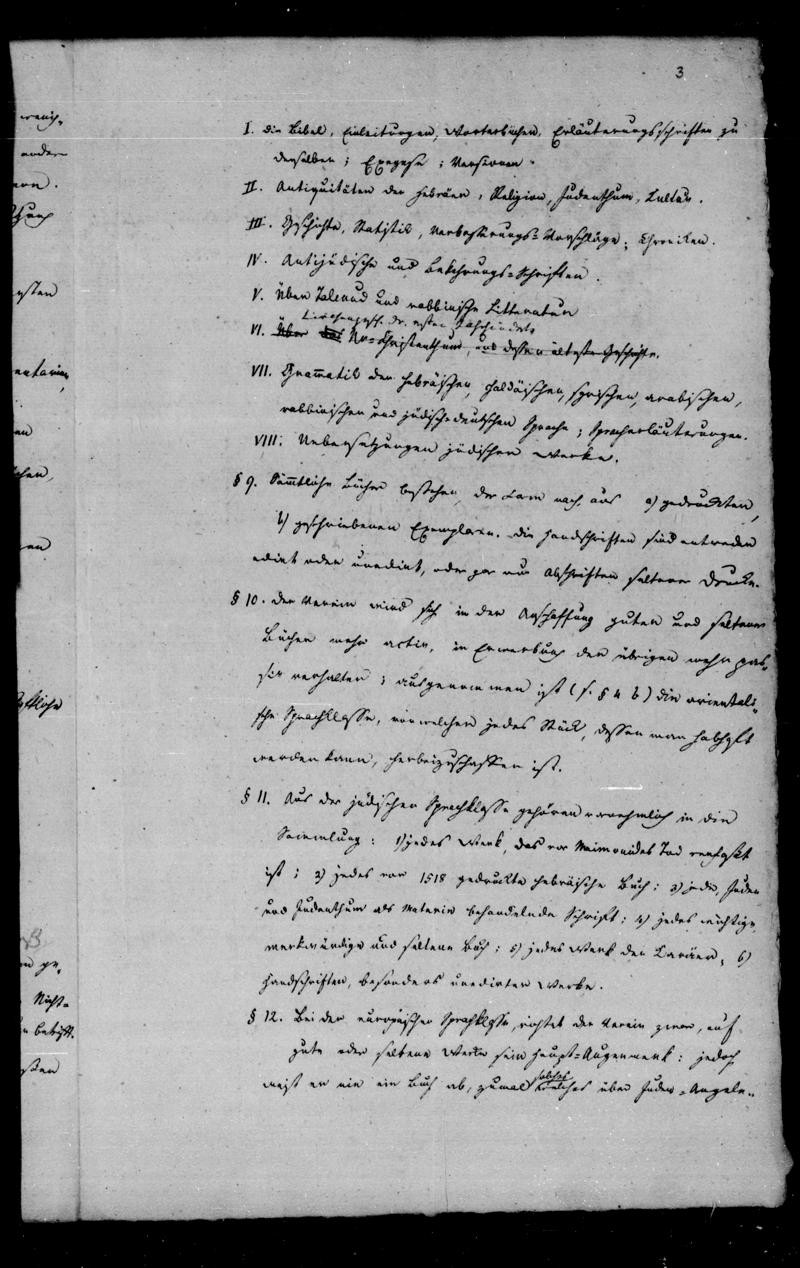 3
I. die Bibel, Einleitungen, Wörterbücher, Erläuterungsschriften zu
derselben; Exegese; Versionen.
II. Antiquitäten der Hebräer, Religion, Judenthum, Cultus.
III. Geschichte, Statistik, Verbesserungs-Vorschläge; Chroniken.
IV. Antijüdische und Bekehrungs-Schriften.
V. Über Talmud und rabbinische Litteratur
Kirchengesch. der ersten Jahrhunderte
VI. Über das Ur-Christenthum, und dessen älteste Geschichte.
VII. Grammatik der hebräischen, chaldäischen, syrischen, arabischen,
rabbinischen und jüdischdeutschen Sprache; Spracherläuterungen.
VIII. Uebersetzungen jüdischer Werke.
§ 9. Sämmtliche Bücher bestehen, der Form nach aus a) gedruckten,
b) geschriebenen Exemplaren. Die Handschriften sind entweder
edirt oder unedirt, oder gar nur Abschriften seltener Drucke.
§ 10. Der Verein wird sich in der Anschaffung guter und seltener
Bücher mehr activ, in Erwerbung der übrigen mehr pas-
siv verhalten; ausgenommen ist (s. § 4 b) die orientali-
sche Sprachklasse, von welcher jedes Stück, dessen man habhaft
werden kann, herbeizuschaffen ist.
§ 11. Aus der jüdischen Sprachklasse gehören vornehmlich in die
Sammlung: 1) jedes Werk, das vor Maimonides Tod verfaßt
ist; 2) jedes vor 1518 gedruckte hebräische Buch; 3) jede, Juden
und Judenthum als Materie behandelnde Schrift; 4) jedes wichtige
merkwürdige und seltene Buch; 5) jedes Werk der Karäer, 6)
Handschriften, besonders unedirter Werke.
§ 12. Bei der europäischen Sprachklasse, richtet der Verein zwar, auf
gute oder seltene Werke sein Haupt-Augenmerk: jedoch
solches
weist er nie ein Buch ab, zumal welches über Juden-Angele-